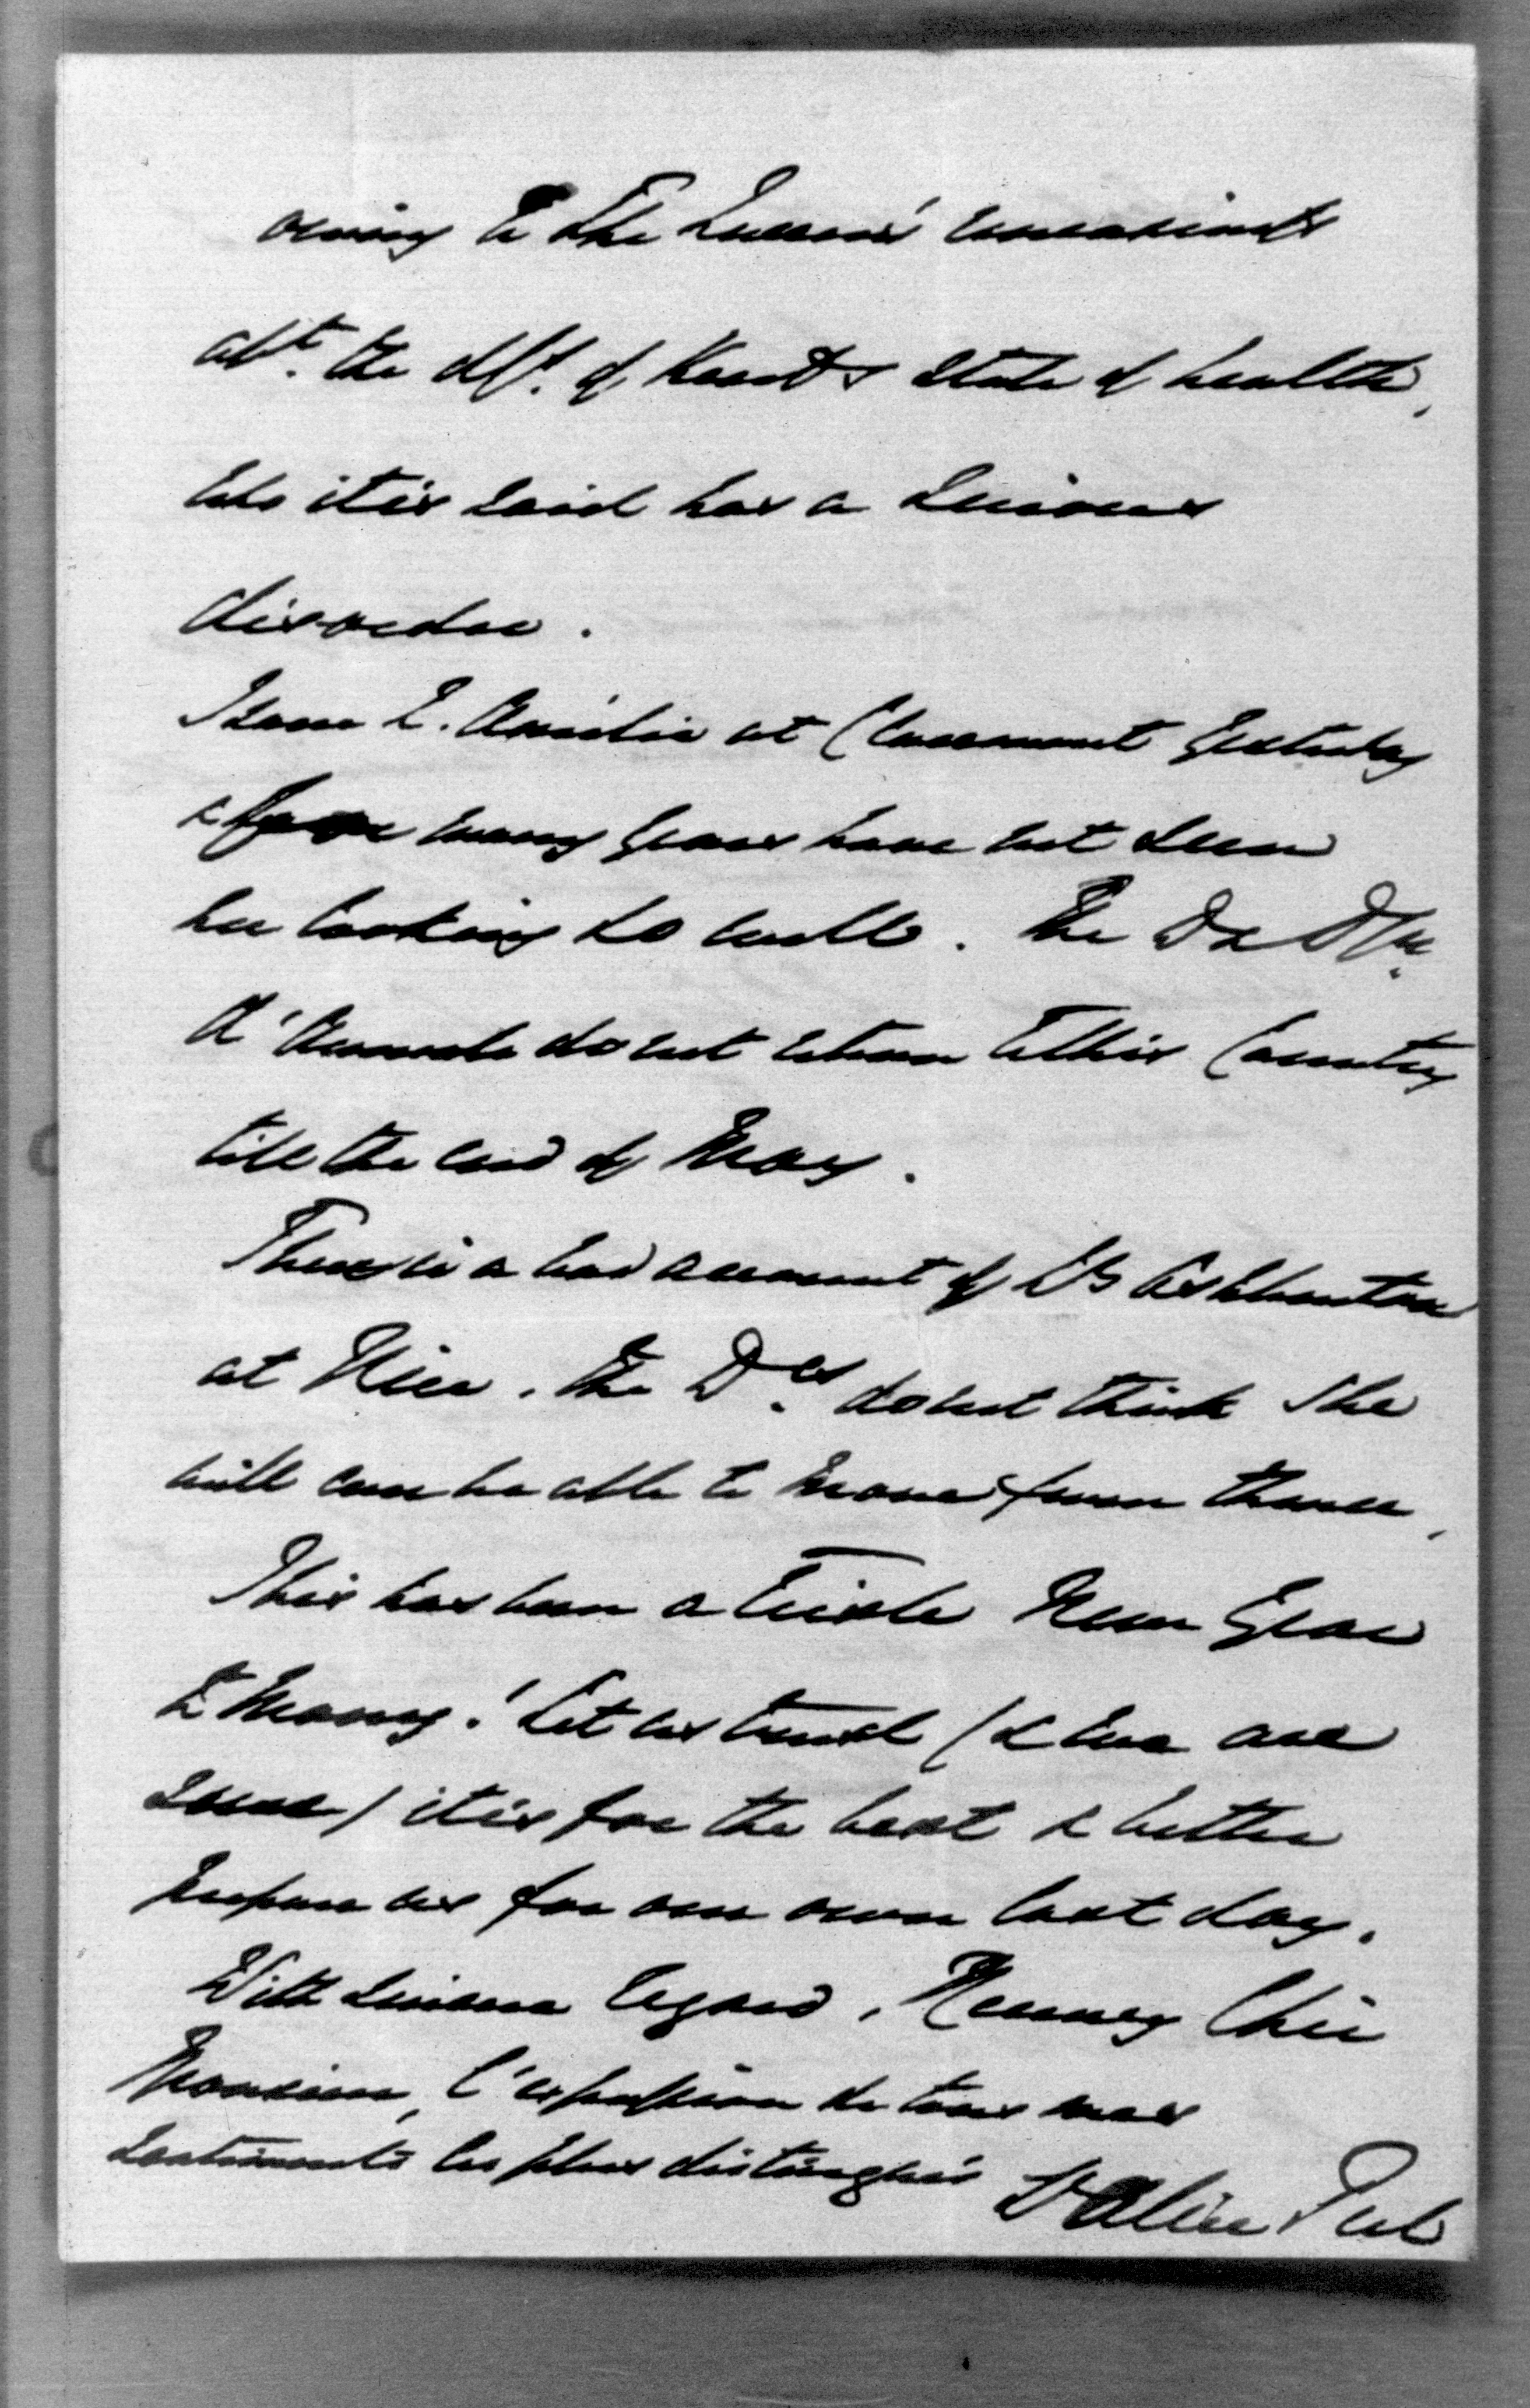 owing to the Queen's uneasiness
abt. the Dss. of Kent's state of health,
who it is said has a serious
disorder.
I saw Q. Amélie at Claremont yesterday
& for many years have not seen
her looking so well. The D & Dss.
d'Aumale do not return to this Country
till the end of May.
There is a bad account of Ly Ashburton
at Nice. The Drs. do not think she
will ever be able to move from thence,
This has been a triste New Year
to Many! Let us trust (& we are
sure) it is for the best & better
prepare us for our own last day.
With sincere regard, Recevez Cher
l'expression de tous mes
sentiments les plus distingués